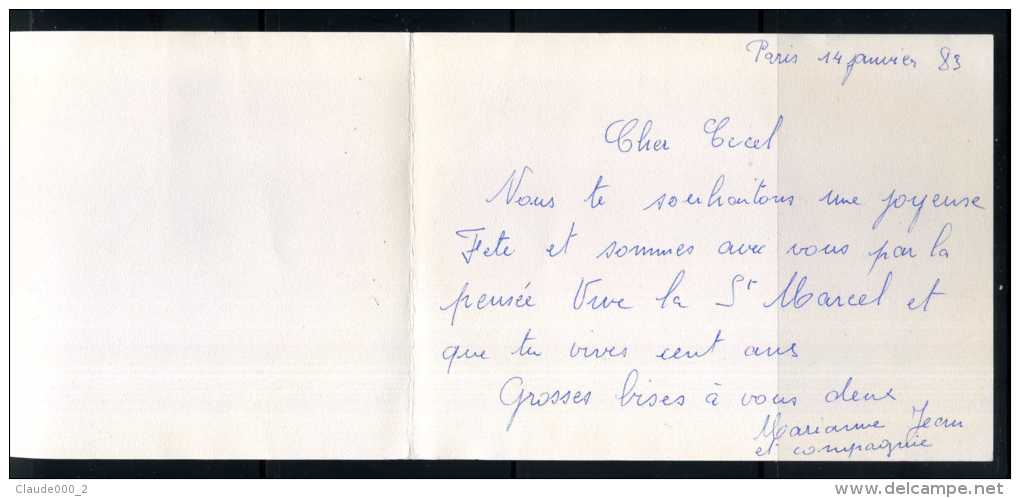 Paris 14 janvier 83
Cher Cecel
Nous te souhaitons une joyeuse
Fete et sommes avec vous par la
pensée Vive la St Marcel et
que tu vives cent ans
Grosses bises à vous deux
Marianne Jean
et compagnie
Claude000_2
www.delcampe.net